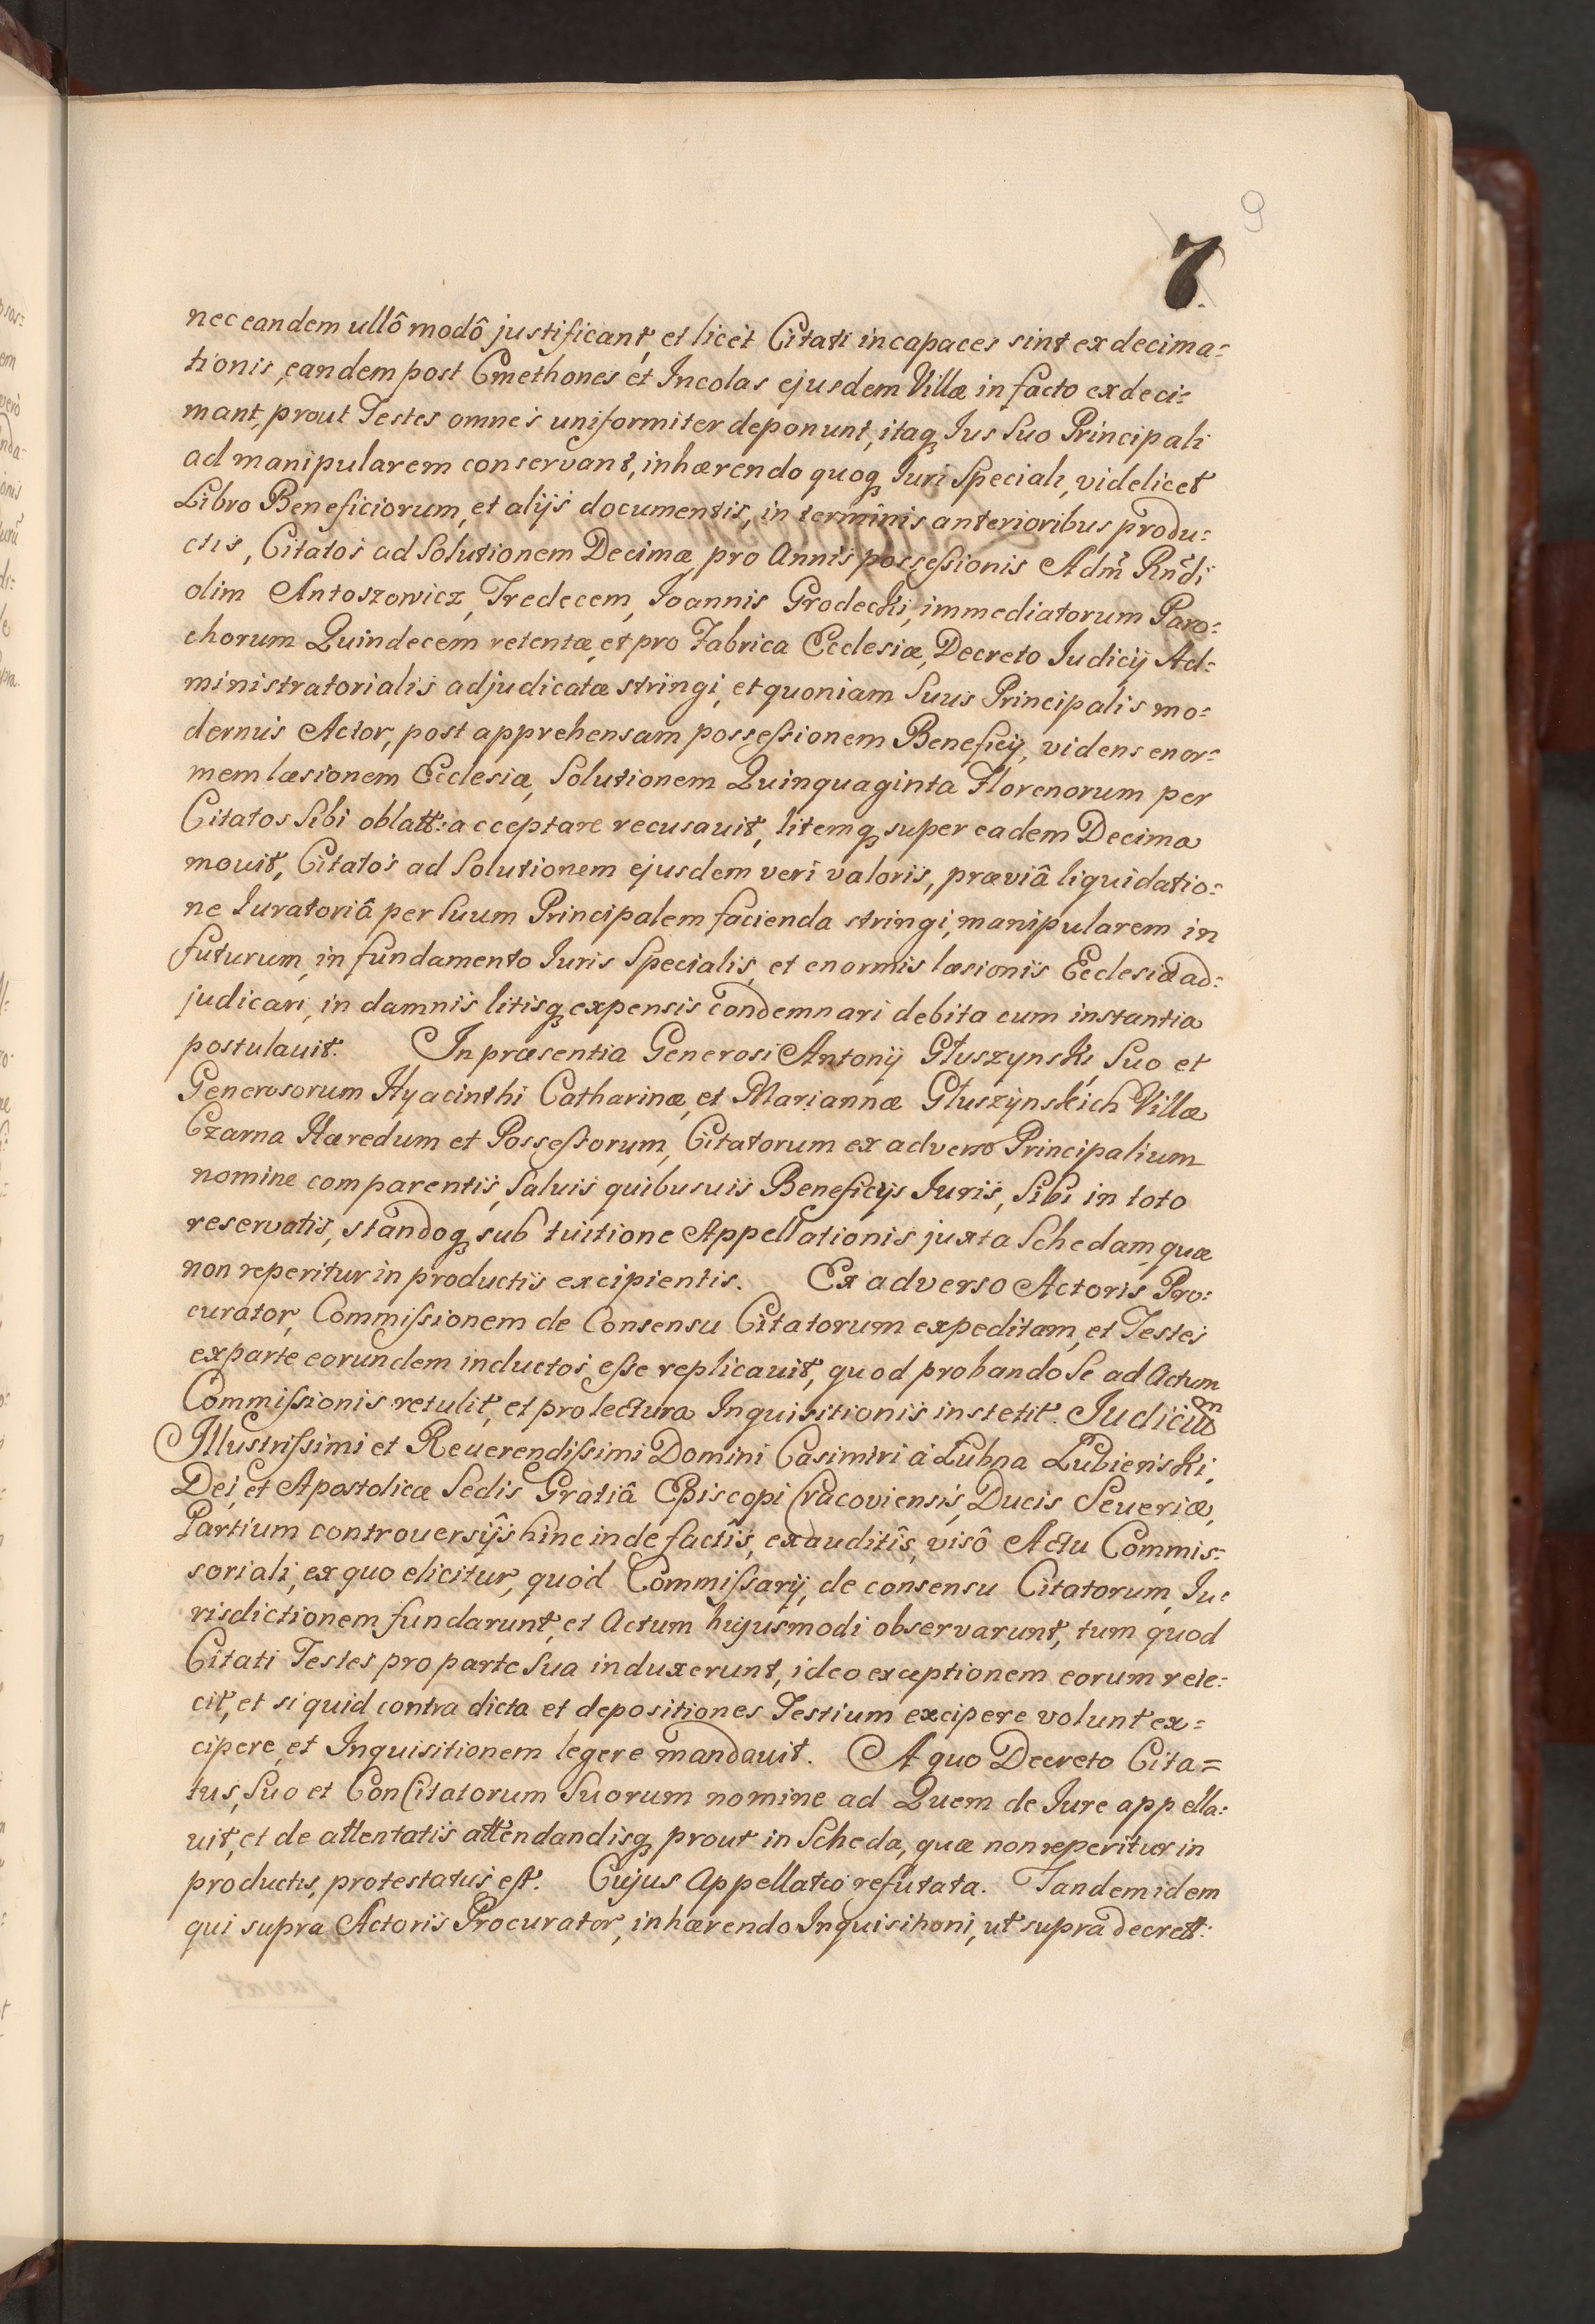 9
7.
nec eandem ullô modô justificant, et licet Citati incapaces sint exdecima=
tionis, eandem post Cmethones et Incolas ejusdem Villæ in facto exdeci=
mant, prout Testes omnes uniformiter deponunt, itaq Ius Suo Principali
ad manipularem conservant, inhærendo quoq Iuri Speciali, videlicet
Libro Beneficiorum, et alijs documentis, in terminis anterioribus produ=
ctis, Citatos ad Solutionem Decimæ, pro Annis possessionis Adm Rndi
olim Antoszowicz, Tredecem, Ioannis Grodecki, immediatorum Paro=
chorum Quindecem retentæ, et pro Fabrica Ecclesiæ, Decreto Iudicij Ad=
ministratorialis adjudicatæ stringi, et quoniam Suus Principalis mo=
dernus Actor, post apprehensam possessionem Beneficij, videns enor=
mem læsionem Ecclesiæ, Solutionem Quinquaginta Florenorum per
Citatos Sibi oblatt: acceptare recusauit, litemq super eadem Decima
mouit, Citatos ad Solutionem ejusdem veri valoris, præviâ liquidatio=
ne Iuratoriâ per Suum Principalem facienda stringi, manipularem in
futurum, in fundamento Iuris Specialis, et enormis læsionis Ecclesiæ ad=
judicari, in damnis litisq expensis condemnari debita cum instantia
postulauit. In præsentia Generosi Antonij Głuszynski, Suo et
Generosorum Hyacinthi Catharinæ, et Mariannæ Głuszynskich Villæ
Czarna Hæredum et Possessorum, Citatorum ex adverso Principalium
nomine comparentis, Saluis quibusuis Beneficijs Iuris, Sibi in toto
reservatis, standoq sub tuitione Appellationis juxta Schedam, quæ
non reperitur in productis excipientis. Ex adverso Actoris Pro=
curator, Commissionem de Consensu Citatorum expeditam, et Testes
ex parte eorundem inductos esse replicauit, quod probando Se ad Actum
Commissionis retulit, et pro lectura Inquisitionis instetit. Judicium
Illustrissimi et Reuerendissimi Domini Casimiri à Łubna Łubienski,
Dei, et Apostolicæ Sedis Gratiâ Episcopi Cracoviensis, Ducis Seueriæ,
Partium controuersijs hinc inde factîs, exauditîs, visô Actu Commis=
soriali, ex quo elicitur, quod Commissarij, de consensu Citatorum, Iu=
risdictionem fundarunt, et Actum hujusmodi observarunt, tum quod
Citati Testes pro parte Sua induxerunt, ideo exceptionem eorum reie=
cit, et si quid contra dicta et depositiones Testium excipere volunt ex=
cipere, et Inquisitionem legere mandauit. A quo Decreto Cita=
tus, Suo et ConCitatorum Suorum nomine ad Quem de Iure appella=
uit, et de attentatis attendandisq prout in Scheda, quæ non reperitur in
productis, protestatus est. Cujus Appellatio refutata. Tandem idem
qui supra Actoris Procurator, inhærendo Inquisitioni, ut supra decrett: